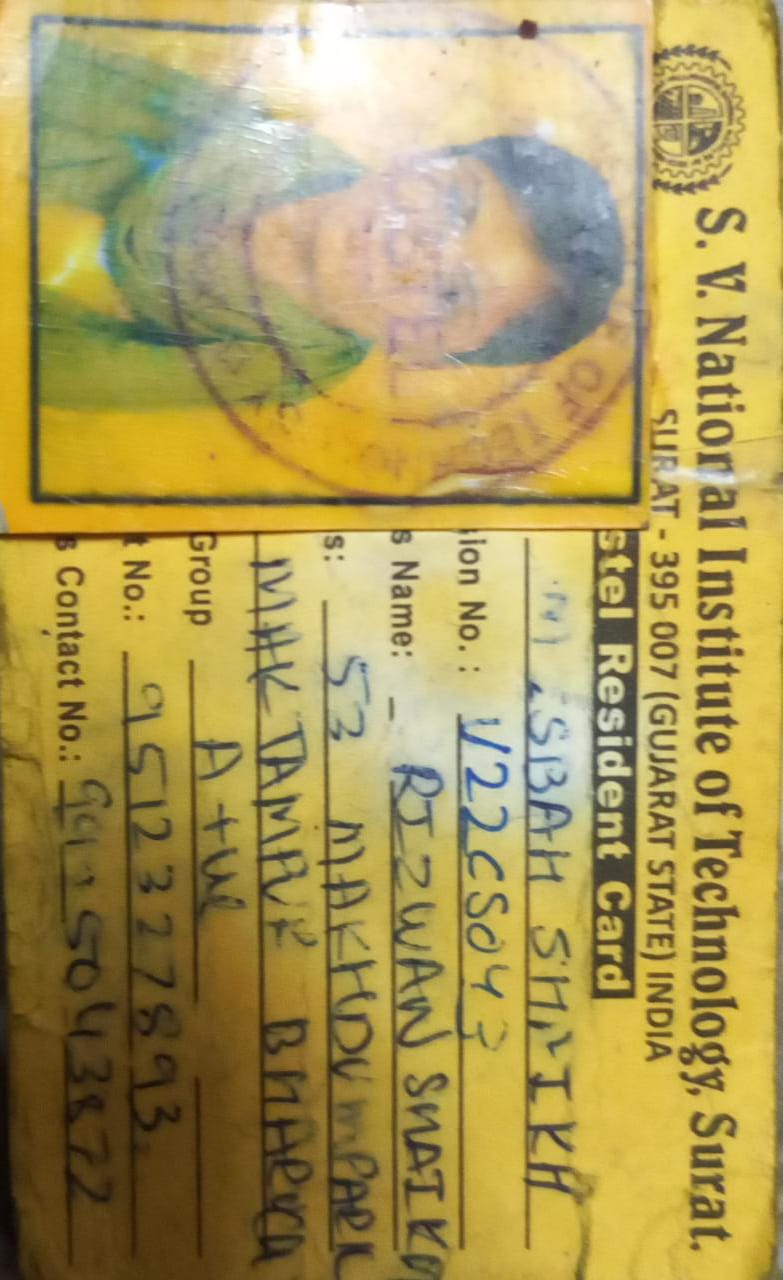 S. V. National Institute of Technology, Surat.
SURAT - 395 007 (GUJARAT STATE) INDIA
stel Resident Card
SBAH SHAIKH
ion No.: U22CS043
s Name: RIZWAN SHAIKH
s: 53 MAKHDUMPARK
BHARUCH
Group A+ve
t No.: 9512327893
s Contact No.:
OF TECHNO
HOSTEL